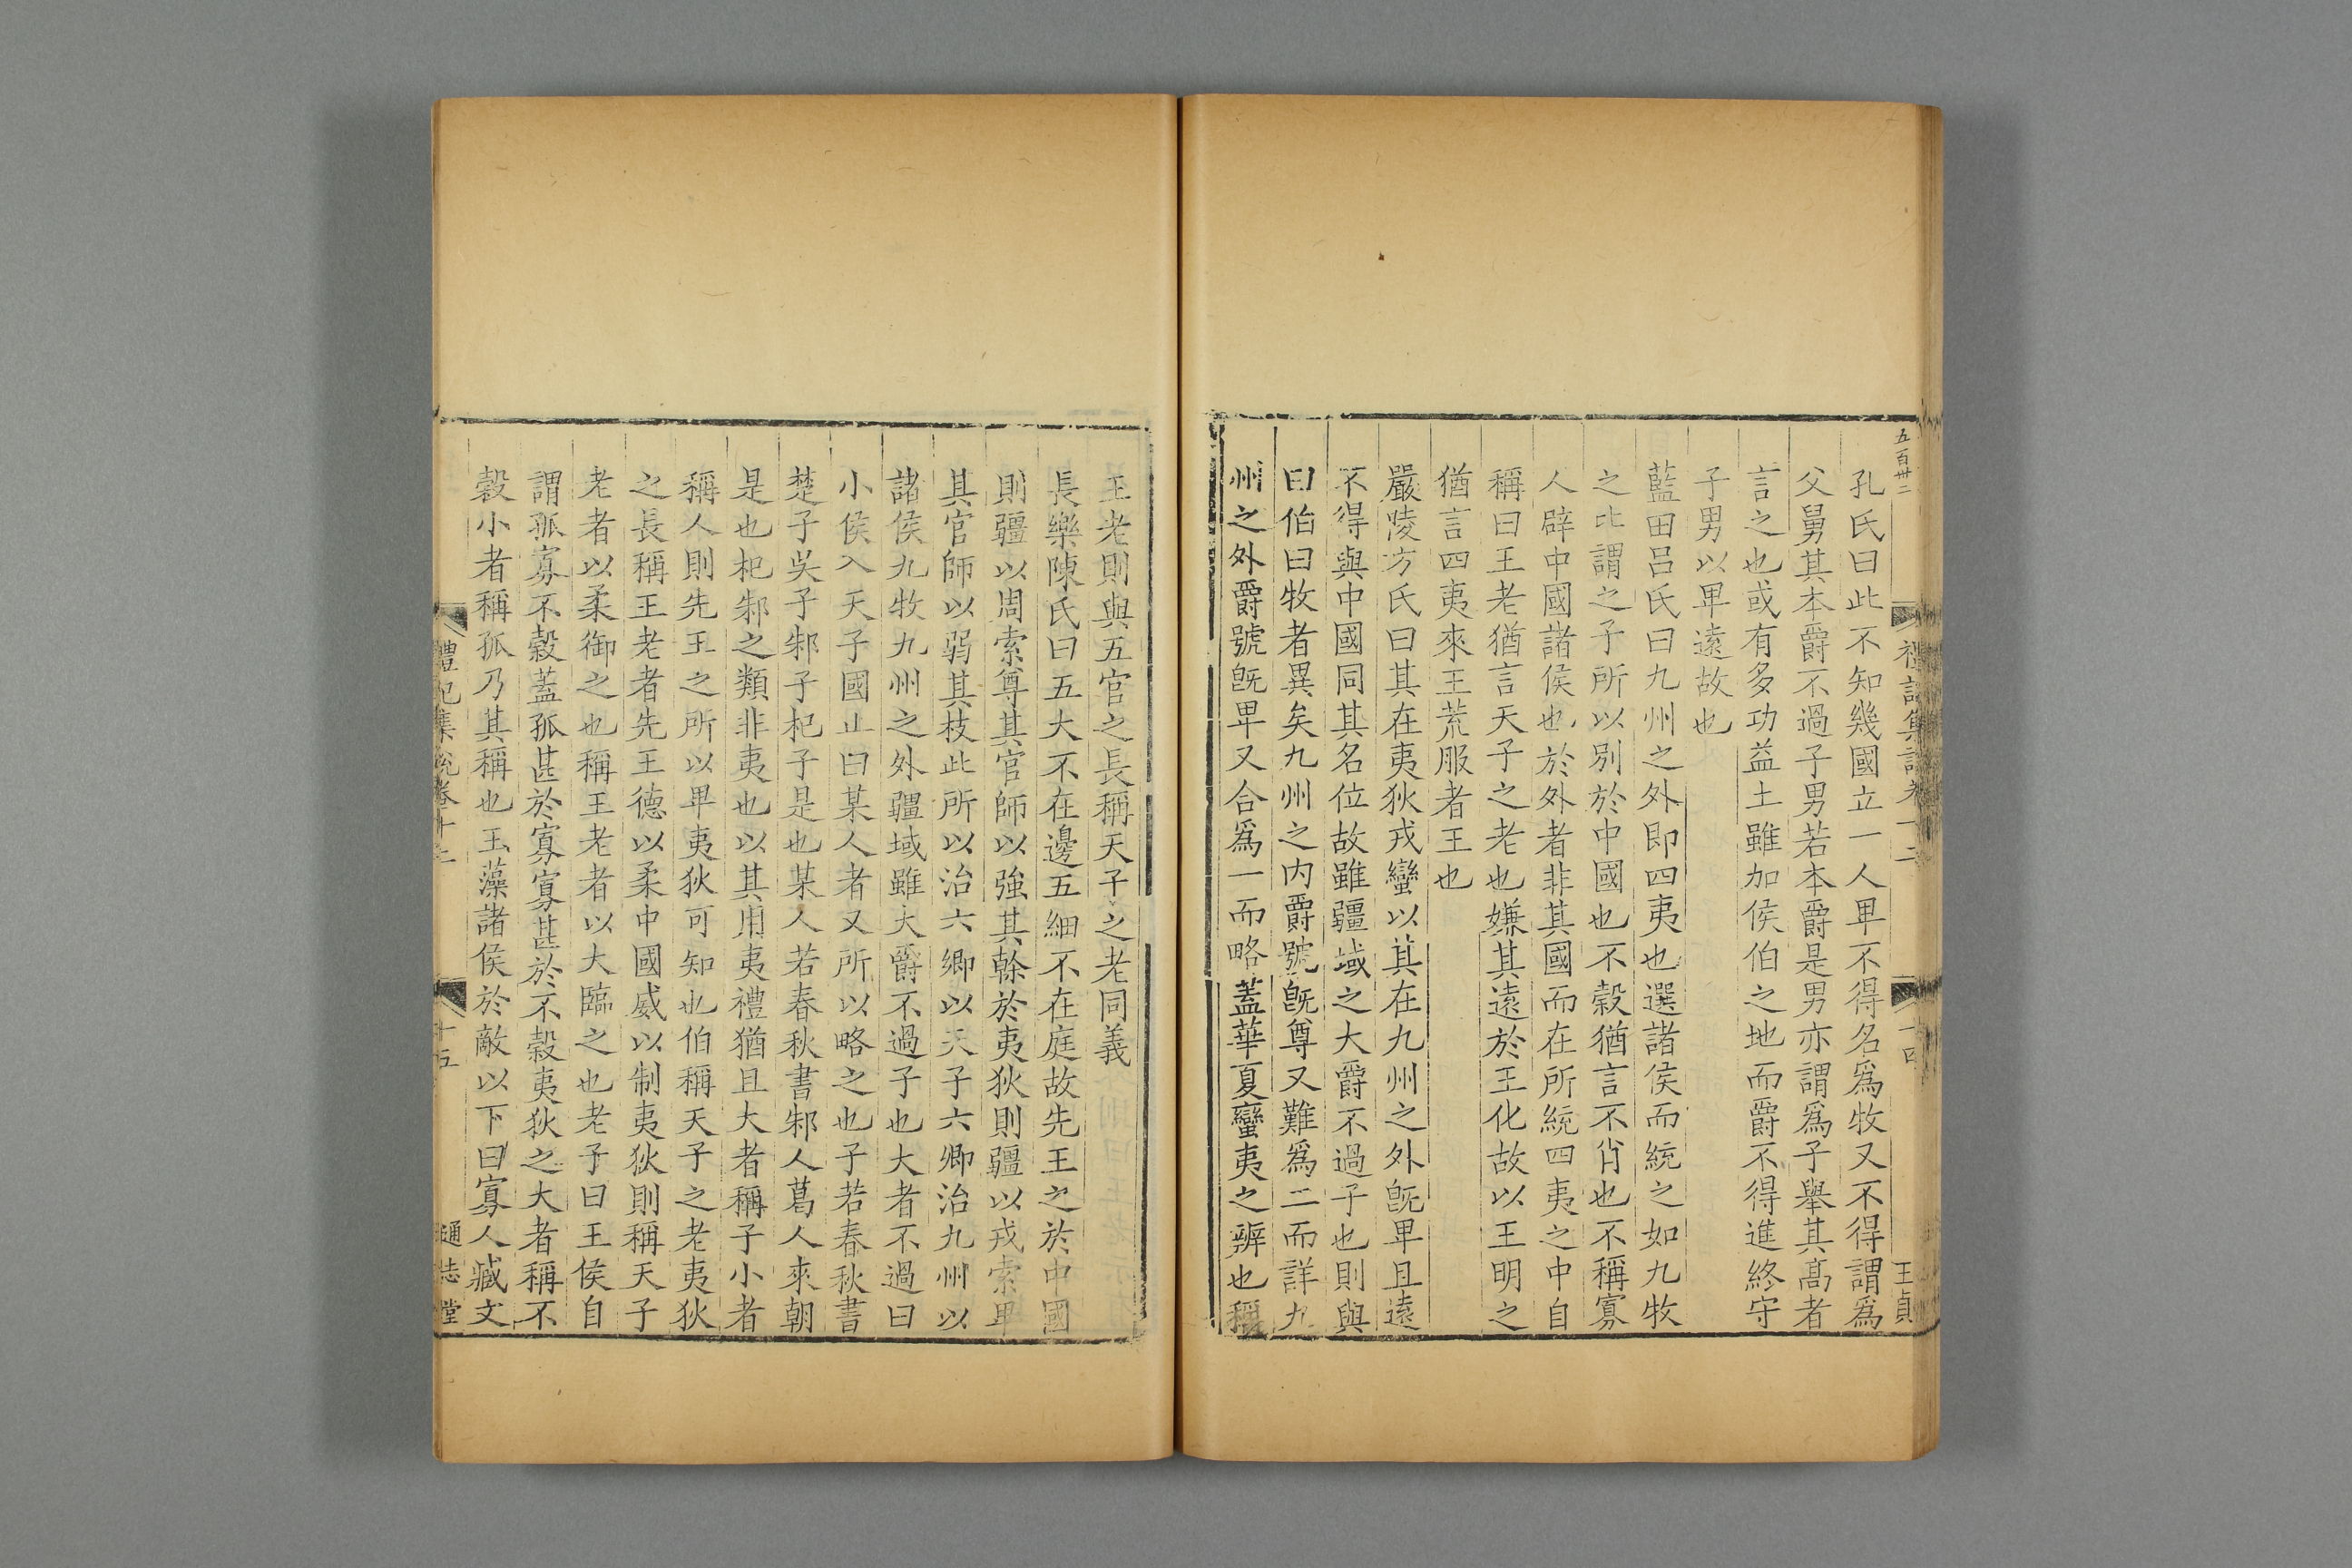 五百卅二
禮記集說卷十二
十四
王貞
孔氏曰此不知幾國立一人卑不得名爲牧又不得謂爲
父舅其本爵不過子男若本爵是男亦謂爲子舉其髙者
言之也或有多功益土雖加侯伯之地而爵不得進終守
子男以卑遠故也
藍田吕氏曰九州之外即四夷也選諸侯而統之如九牧
之比謂之子所以别於中國也不穀猶言不肖也不稱寡
人辟中國諸侯也於外者非其國而在所統四夷之中自
稱曰王老猶言天子之老也嫌其遠於王化故以王明之
猶言四夷來王荒服者王也
嚴陵方氏曰其在夷狄戎蠻以其在九州之外旣卑且遠
不得與中國同其名位故雖疆域之大爵不過子也則與
曰伯曰牧者異矣九州之内爵號旣尊又難爲二而詳九
州之外爵號旣卑又合爲一而略蓋華夏蠻夷之辨也稱
王老則與五官之長稱天子之老同義
長樂陳氏曰五大不在邊五細不在庭故先王之於中國
則疆以周索尊其官師以強其榦於夷狄則疆以戎索卑
其官師以弱其枝此所以治六卿以天子六卿治九州以
諸侯九牧九州之外疆域雖大爵不過子也大者不過曰
小侯入天子國止曰某人者又所以略之也子若春秋書
楚子吳子邾子杞子是也某人若春秋書邾人葛人來朝
是也杞邾之類非夷也以其用夷禮猶且大者稱子小者
稱人則先王之所以卑夷狄可知也伯稱天子之老夷狄
之長稱王老者先王德以柔中國威以制夷狄則稱天子
老者以柔御之也稱王老者以大臨之也老子曰王侯自
謂孤寡不穀蓋孤甚於寡寡甚於不穀夷狄之大者稱不
穀小者稱孤乃其稱也玉藻諸侯於敵以下曰寡人臧文
禮記集說卷十二
十五
通志堂